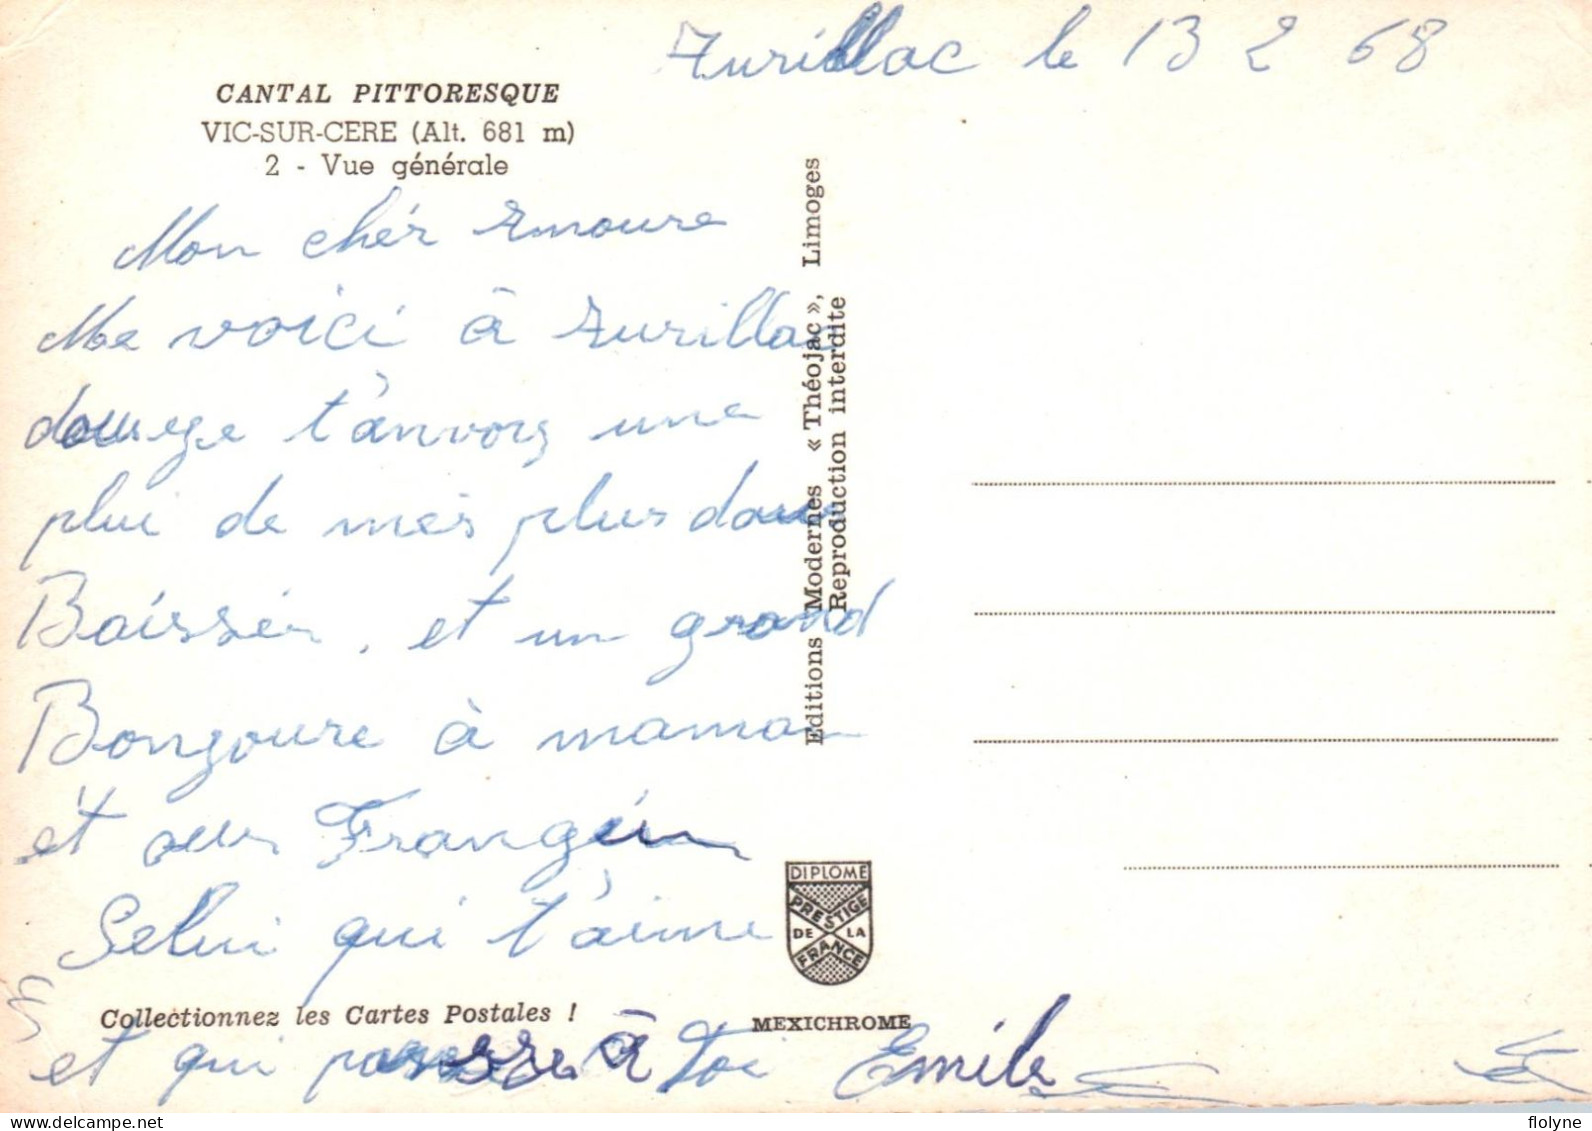 Aurillac le 13 2 68
CANTAL PITTORESQUE
VIC-SUR-CERE (Alt. 681 m)
2 - Vue générale
Mon chér Amoure
Me voici à Aurillac
t'anvois une
plui de mes plus doux
Baissér, et un grand
Bongoure à maman
et aux Frangin
Selui qui t'aime
et qui passe à Toi Emile
Collectionnez les Cartes Postales !
Editions Modernes « Théojac », Limoges
Reproduction interdite
DIPLOME
PRESTIGE
DE LA
FRANCE
MEXICHROME
flolyne